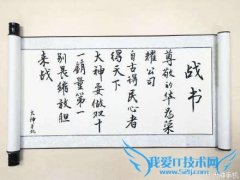 战书
尊敬的华为荣
耀公司
自古得民心者
得天下
大神要做双十
一销量第一
别畏缩放胆
来战
大神手机
我爱IT技术网
www.52ij.com